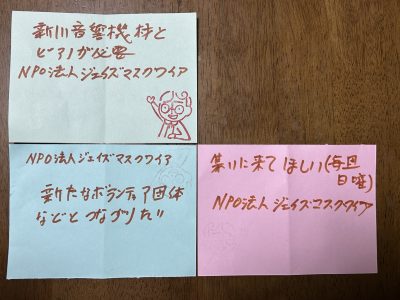 新しい音響機材と
ピアノが必要
NPO法人ジェイズマスクワイア
NPO法人ジェイズマスクワイア
新たなボランティア団体
などとつながりたい
集いに来てほしい(毎回
日曜)
NPO法人ジェイズマスクワイア